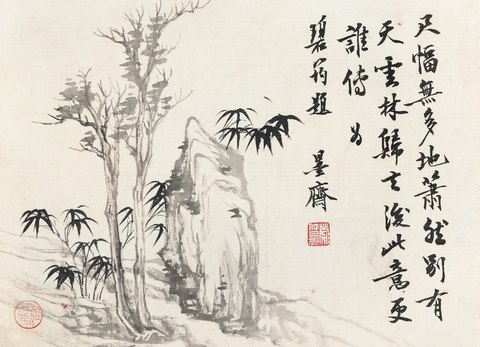 尺幅無多地蕭然別有
天雲林歸去後此意更
誰傳 為
碧筠題 星齋